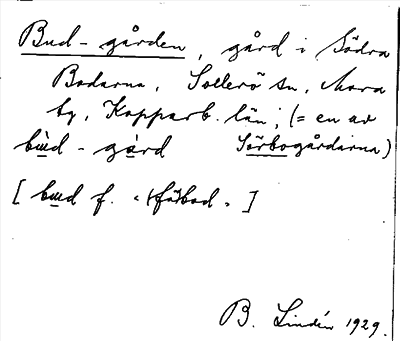 Bud-gården, gård i Södra
Bodarna, Sollerö sn, Mora
tg, Kopparb. län; (= en av
bùd-gård Sörbogårdarna)
[bud f. "(fä)bod"]
B. Lindén 1929.